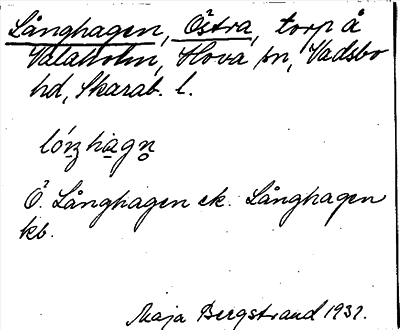 Långhagen, Östra, torp å
Valaholm, Hova sn, Vadsbo
hd, Skarab. l.
lóṉzha̱gn̥
Ö. Långhagen ek. Långhagen
kb.
Maja Bergstrand 1931.